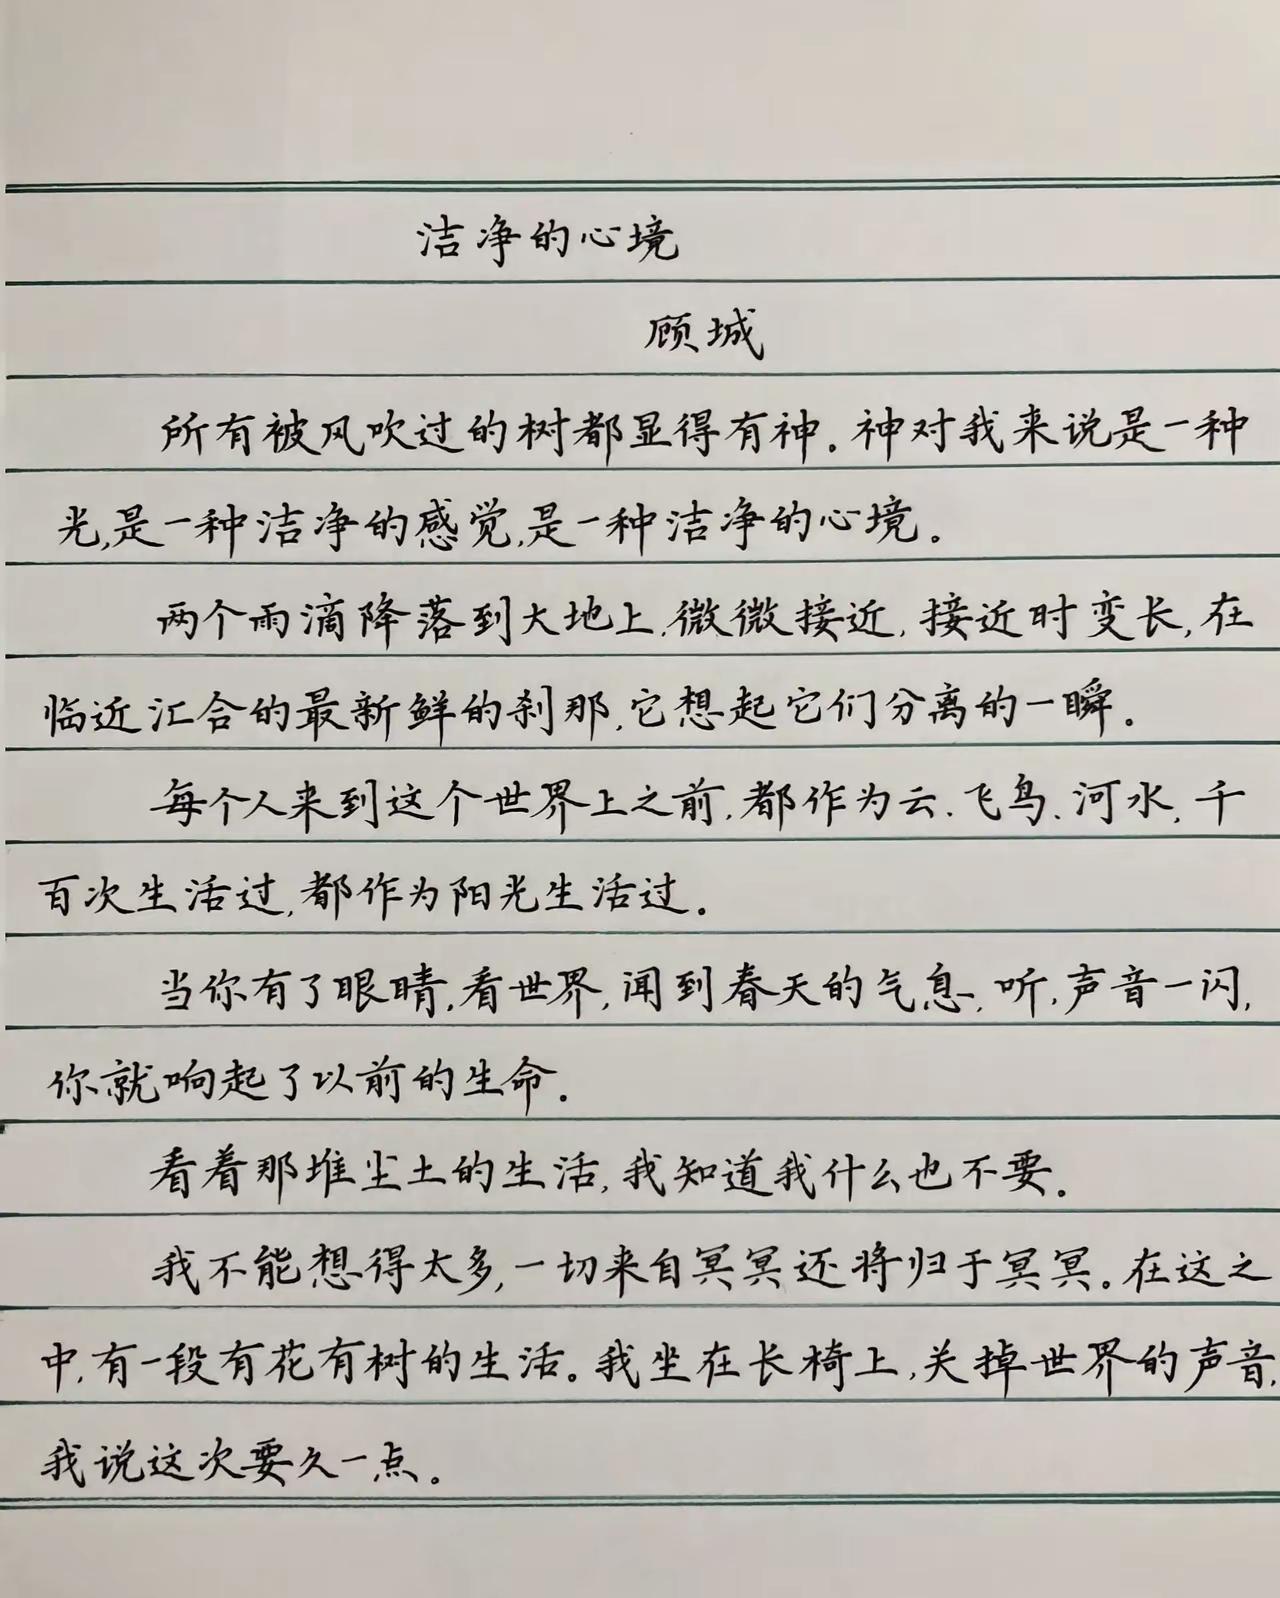 洁净的心境
顾城
所有被风吹过的树都显得有神。神对我来说是一种
光,是一种洁净的感觉,是一种洁净的心境。
两个雨滴降落到大地上,微微接近,接近时变长,在
临近汇合的最新鲜的刹那,它想起它们分离的一瞬。
每个人来到这个世界上之前,都作为云、飞鸟、河水,千
百次生活过,都作为阳光生活过。
当你有了眼睛,看世界,闻到春天的气息,听,声音一闪,
你就响起了以前的生命。
看着那堆尘土的生活,我知道我什么也不要。
我不能想得太多,一切来自冥冥还将归于冥冥。在这之
中,有一段有花有树的生活。我坐在长椅上,关掉世界的声音,
我说这次要久一点。